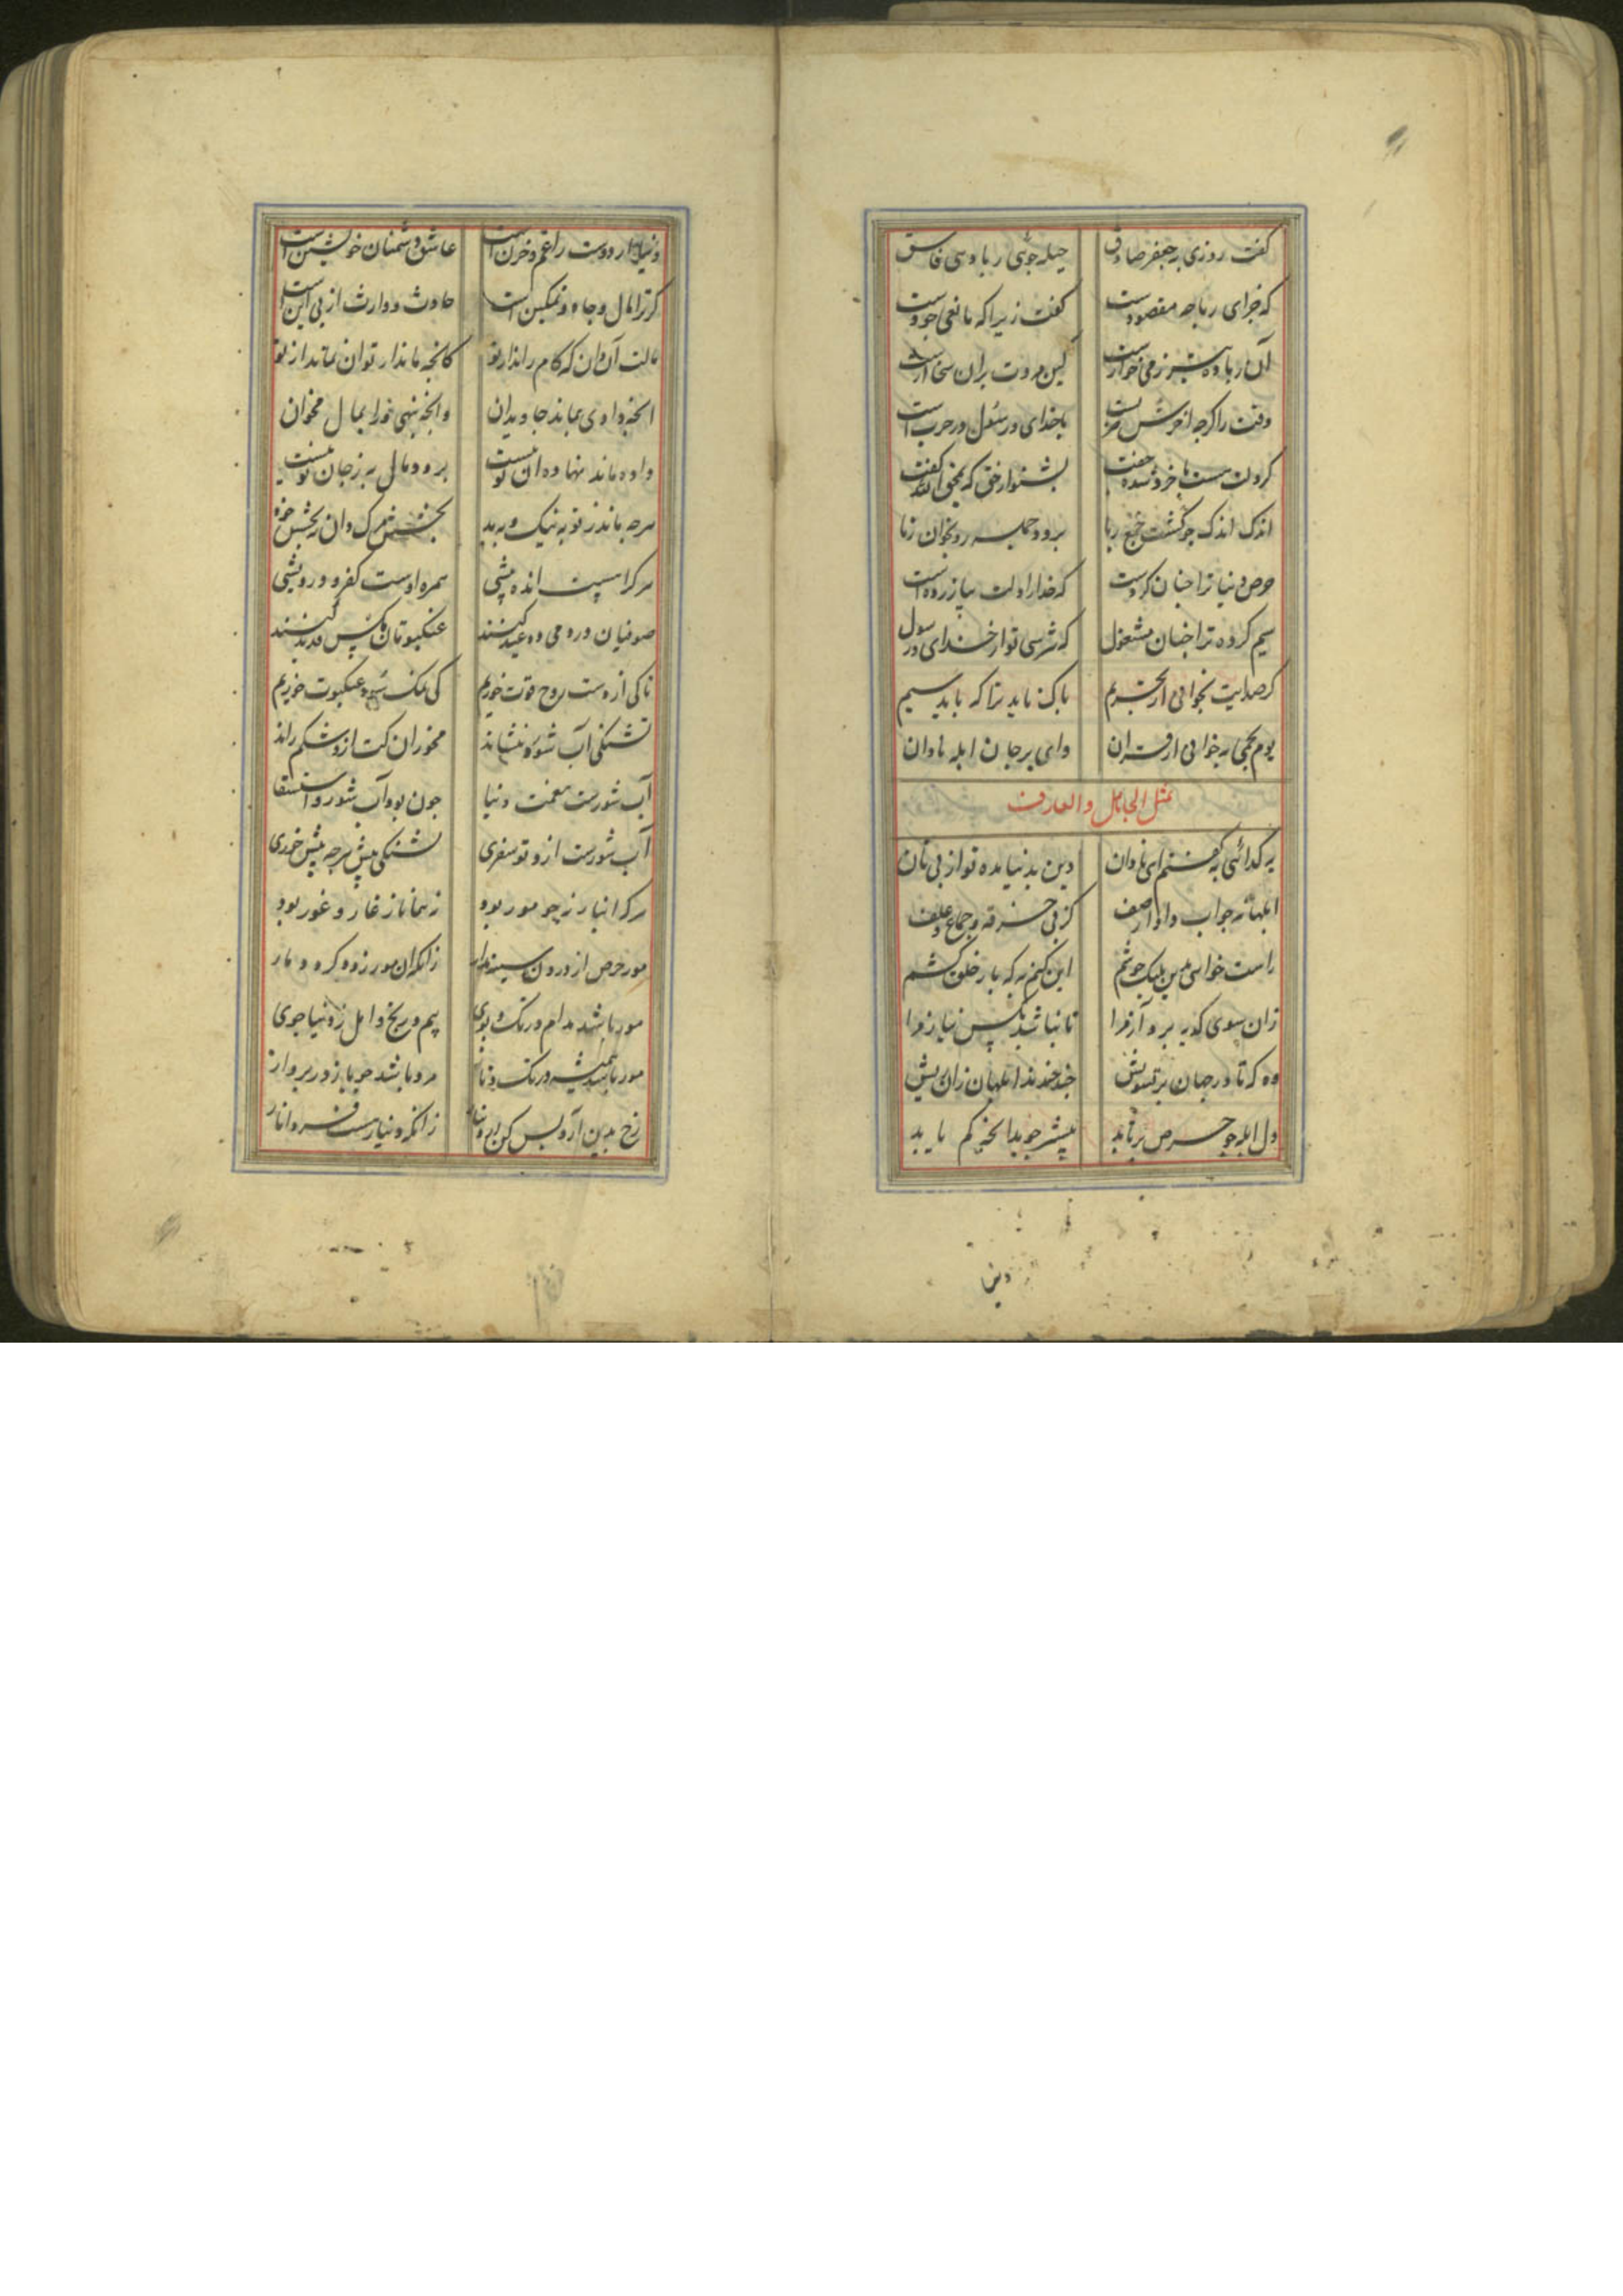 گفت روزی به جعفر صادق حیله جوئی ربا دهی فاسق
که حرای ربا چه مقصودست گفت زیرا که مانع جودست
آن ربا ده بتر ز می خوارست کین مروت بران سخا آرست
وقت را گرچه از خرش حربست با خدای و رسول در حربست
گر دلت هست با خرد شده جفت بشنو از حق که یمحق الله گفت
اندک اندک چو گشت جمع ربا برود جمله رو بخوان ز نبا
حرص دنیا ترا چنان کردست که خدا از دلت بیازردست
سیم کرده ترا چنان مشغول که نترسی تو از خدای و رسول
گر صدایت بخوانی از بخریم باک ناید ترا که باید سیم
یوم یحمی نه خوانی از قران وای بر جان ابله نادان
مثل الجاهل والعارف
به گدائی بگفتم ای نادان دین بدنیا مده تو از پی نان
ابلهانه جواب داد از صف کز پی خرقه و جماع و علف
راست خواهی بدین بلیک خوشم این کنم به که بار خلق کشم
زان سوی کدیه برد آز مرا تا نباشد بکس نیاز مرا
ده که تا در جهان پر تشویش چند خندند ابلهان زان ریش
دل ابله چو حرص برتابد بیشتر جوید آنچه کم یابد
دین
دنیا ار دوست را غم و حزن است عاشق دشمنان خویشتن است
گر ترا مال و جاه و تمکین است حادث و وارث از پی این است
مالت آن دان که کام راند از تو کانچه ماند از تو آن نماند از تو
آنچه دادی بماند جاویدان وانچه بنهی ورا بمال مخوان
داده ماند نهاده آن تو نیست برو و مال به ز جان تو نیست
هرچه ماند ز تو به نیک و به بد بخشش مرگ دان نه بخشش خود
هرکرا هست انده بیشی همره اوست کفر و درویشی
صوفیان در دمی دو عید کنند عنکبوتان مگس قدید کنند
ما که از دست روح قوت خوریم کی نمک سود عنکبوت خوریم
تشنگی آب شور ننشاند مخور آن کت ازو شکم راند
آب شورست نعمت دنیا چون بود آب شور و استسقا
آب شورست ازو تو سفری تشنگی بیش هرچه بیش خوری
هر که انبارنه چو مور بود زهمانا ز غار و غور بود
مور حرص از درون سینه برآر زانکه آن مور زود گردد مار
مور باشد مدام در تک و پوی بیم و رنج و امل ز دنیا جوی
مور باشد همیشه در تک و تاز مرد باشد چو باز در پرواز
رخ بدین آر و بس کن از دنیا زانکه دنیاست فسرد و انار